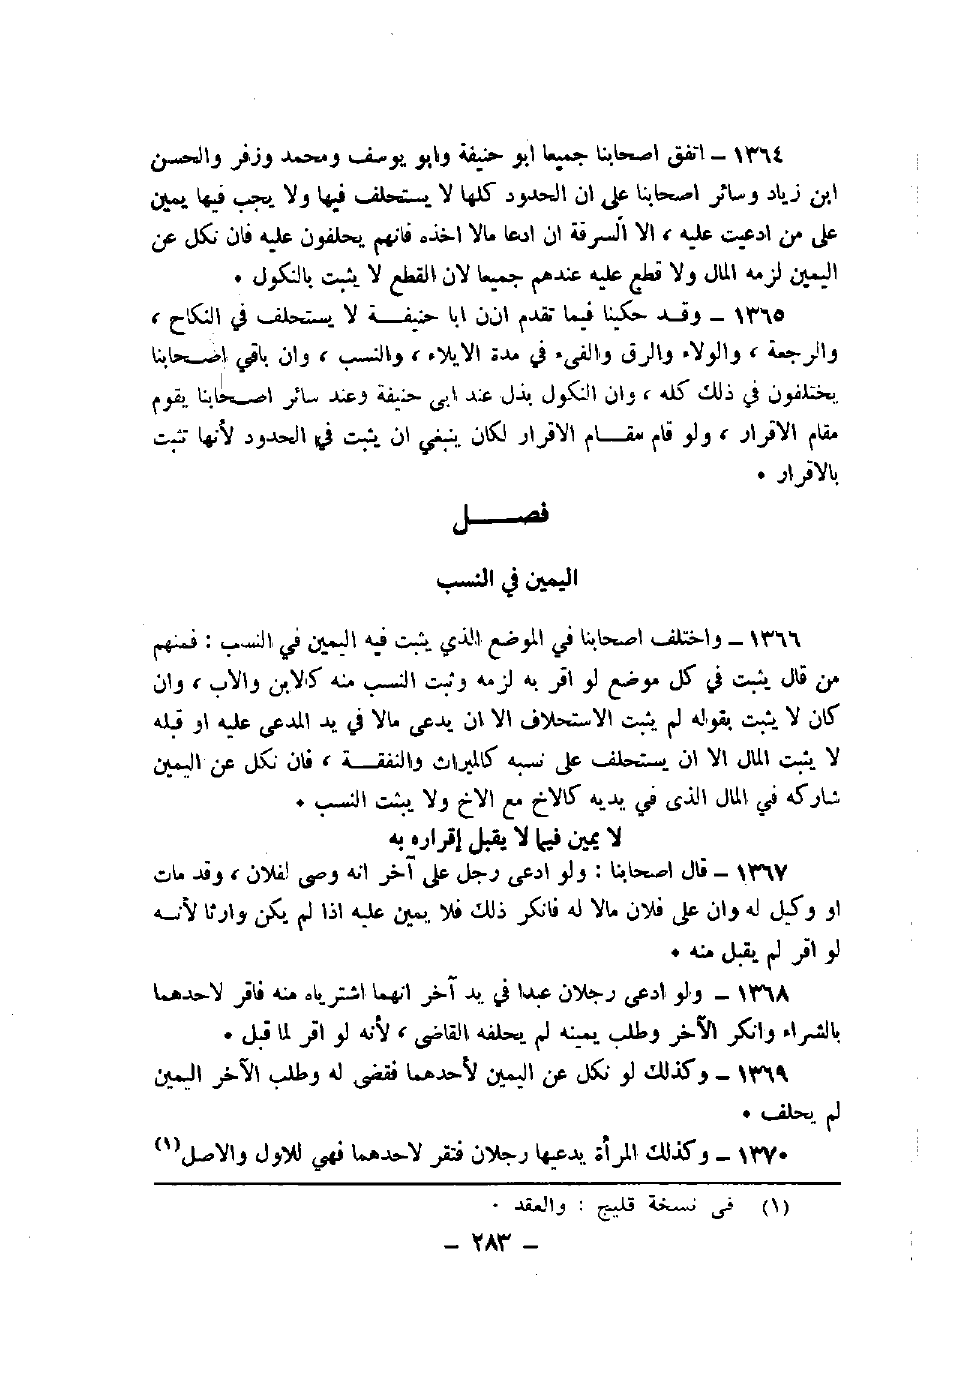 ١٣٦٤ ـ اتفق اصحابنا جميعا ابو حنيفة وابو يوسف ومحمد وزفر والحسن
ابن زياد وسائر اصحابنا على ان الحدود كلها لا يستحلف فيها ولا يجب فيها يمين
على من ادعيت عليه ، الا السرقة ان ادعا مالا اخذه فانهم يحلفون عليه فان نكل عن
اليمين لزمه المال ولا قطع عليه عندهم جميعا لان القطع لا يثبت بالنكول ٠
١٣٦٥ ـ وقـد حكينا فيما تقدم ان ابا حنيفـــة لا يستحلف في النكاح ،
والرجعة ، والولاء والرق والفيء في مدة الايلاء ، والنسب ، وان باقي اصـحابنا
يختلفون في ذلك كله ، وان النكول بذل عند ابى حنيفة وعند سائر اصـحابنا يقوم
مقام الاقرار ، ولو قام مقـــام الاقرار لكان ينبغي ان يثبت في الحدود لأنها تثبت
بالاقرار ٠
فصــــل
اليمين في النسب
١٣٦٦ ـ واختلف اصحابنا في الموضع الذي يثبت فيه اليمين في النسب : فمنهم
من قال يثبت في كل موضع لو اقر به لزمه وثبت النسب منه كالابن والاب ، وان
كان لا يثبت بقوله لم يثبت الاستحلاف الا ان يدعى مالا في يد المدعى عليه او قبله
لا يثبت المال الا ان يستحلف على نسبه كالميراث والنفقـــة ، فان نكل عن اليمين
شاركه في المال الذى في يديه كالاخ مع الاخ ولا يثبت النسب ٠
لا يمين فيما لا يقبل إقراره به
١٣٦٧ ـ قال اصحابنا : ولو ادعى رجل على آخر انه وصى لفلان ، وقد مات
او وكيل له وان على فلان مالا له فانكر ذلك فلا يمين عليه اذا لم يكن وارثا لأنـه
لو اقر لم يقبل منه ٠
١٣٦٨ ـ ولو ادعى رجلان عبدا في يد آخر انهما اشترياه منه فاقر لاحدهما
بالشراء وانكر الآخر وطلب يمينه لم يحلفه القاضى ، لأنه لو اقر لما قبل ٠
١٣٦٩ ـ وكذلك لو نكل عن اليمين لأحدهما فقضى له وطلب الآخر اليمين
لم يحلف ٠
١٣٧٠ ـ وكذلك المرأة يدعيها رجلان فتقر لاحدهما فهي للاول والاصل(١)
(١) فى نسخة قليج : والعقد ٠
ـ ٢٨٣ ـ